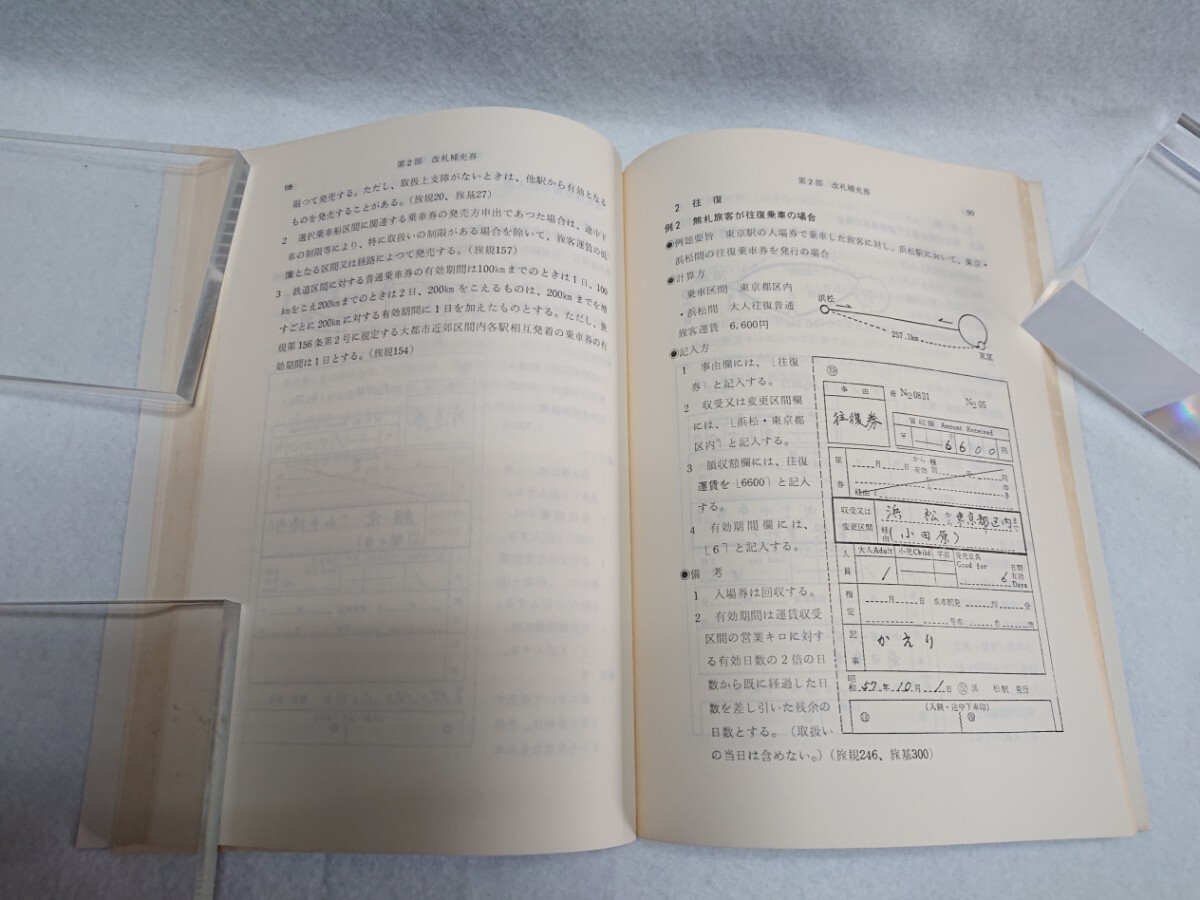 第2部 改札補充券
98
限つて発売する。ただし、取扱上支障がないときは、他駅から有効となる
ものを発売することがある。(旅規20、旅基27)
2 選択乗車船区間に関連する乗車券の発売方申出であつた場合は、途中下
車の制限等により、特に取扱いの制限がある場合を除いて、旅客運賃の低
廉となる区間又は経路によつて発売する。(旅規157)
3 鉄道区間に対する普通乗車券の有効期間は100kmまでのときは1日、100
kmをこえ200kmまでのときは2日、200kmをこえるものは、200kmまでを増
すごとに200kmに対する有効期間に1日を加えたものとする。ただし、旅
規第156条第2号に規定する大都市近郊区間内各駅相互発着の乗車券の有
効期間は1日とする。(旅規154)
第2部 改札補充券
99
2 往復
例2 無札旅客が往復乗車の場合
●例題要旨 東京駅の入場券で乗車した旅客に対し、浜松駅において、東京・
浜松間の往復乗車券を発行の場合
●計算方
乗車区間 東京都区内
・浜松間 大人往復普通
旅客運賃 6,600円
浜松
257.1km
東京
●記入方
1 事由欄には、⌊往復
券⌉と記入する。
2 収受又は変更区間欄
には、⌊浜松・東京都
区内⌉と記入する。
3 領収額欄には、往復
運賃を⌊6600⌉と記入
する。
4 有効期間欄には、
⌊6⌉と記入する。
●備 考
1 入場券は回収する。
2 有効期間は運賃収受
区間の営業キロに対す
る有効日数の2倍の日
数から既に経過した日
数を差し引いた残余の
日数とする。(取扱い
の当日は含めない。)(旅規246、旅基300)
事由
往復券
No 0831
No 05
領収額 Amount Received
¥ 6600円
原券
月 日から 種
有効 間 円
経由
収受又は
変更区間
浜 松から東京都区内まで
経由(小田原)
人員
大人Adult 小児Child
1
発売日共
Good for
6
日間
有効
Days
指定
月 日 月 分
記事
かえり
昭和57年10月1日 浜 松駅 発行
(入鋏・途中下車印)